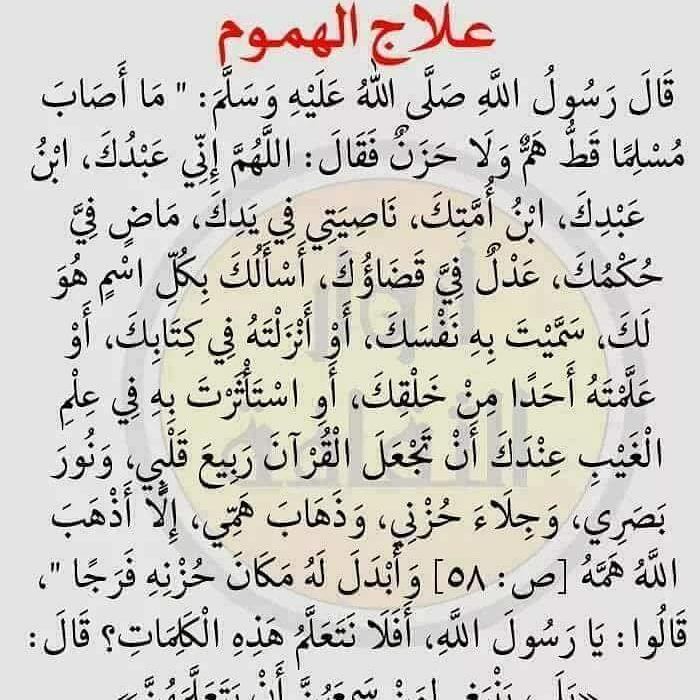 علاج الهموم
قَالَ رَسُولُ اللَّهِ صَلَّى اللَّهُ عَلَيْهِ وَسَلَّمَ: " مَا أَصَابَ
مُسْلِمًا قَطُّ هَمٌّ وَلَا حَزَنٌ فَقَالَ: اللَّهُمَّ إِنِّي عَبْدُكَ، ابْنُ
عَبْدِكَ، ابْنُ أَمَتِكَ، نَاصِيَتِي فِي يَدِكَ، مَاضٍ فِيَّ
حُكْمُكَ، عَدْلٌ فِيَّ قَضَاؤُكَ، أَسْأَلُكَ بِكُلِّ اسْمٍ هُوَ
لَكَ، سَمَّيْتَ بِهِ نَفْسَكَ، أَوْ أَنْزَلْتَهُ فِي كِتَابِكَ، أَوْ
عَلَّمْتَهُ أَحَدًا مِنْ خَلْقِكَ، أَوِ اسْتَأْثَرْتَ بِهِ فِي عِلْمِ
الْغَيْبِ عِنْدَكَ أَنْ تَجْعَلَ الْقُرْآنَ رَبِيعَ قَلْبِي، وَنُورَ
بَصَرِي، وَجِلَاءَ حُزْنِي، وَذَهَابَ هَمِّي، إِلَّا أَذْهَبَ
اللَّهُ هَمَّهُ [ص: ٥٨] وَأَبْدَلَ لَهُ مَكَانَ حُزْنِهِ فَرَجًا "،
قَالُوا: يَا رَسُولَ اللَّهِ، أَفَلَا نَتَعَلَّمُ هَذِهِ الْكَلِمَاتِ؟ قَالَ:
«بَلَى يَنْبَغِي لِمَنْ سَمِعَهُنَّ أَنْ يَتَعَلَّمَهُنَّ»